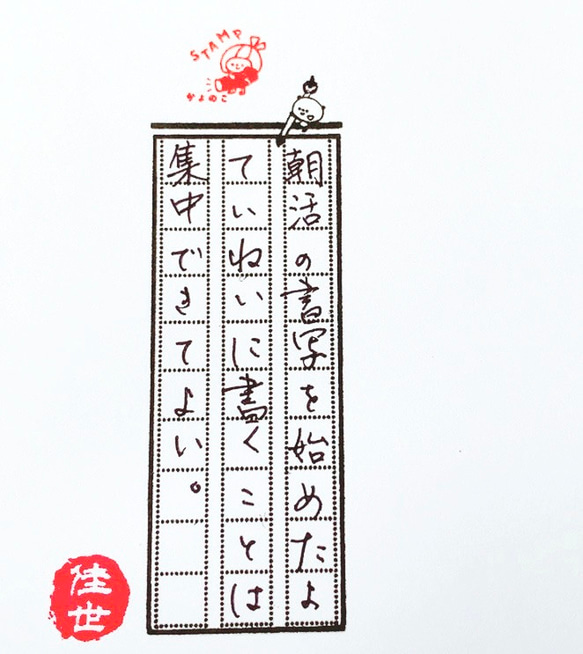 STAMP
かよのこ
朝活の書写を始めたよ
ていねいに書くことは
集中できてよい。
佳世